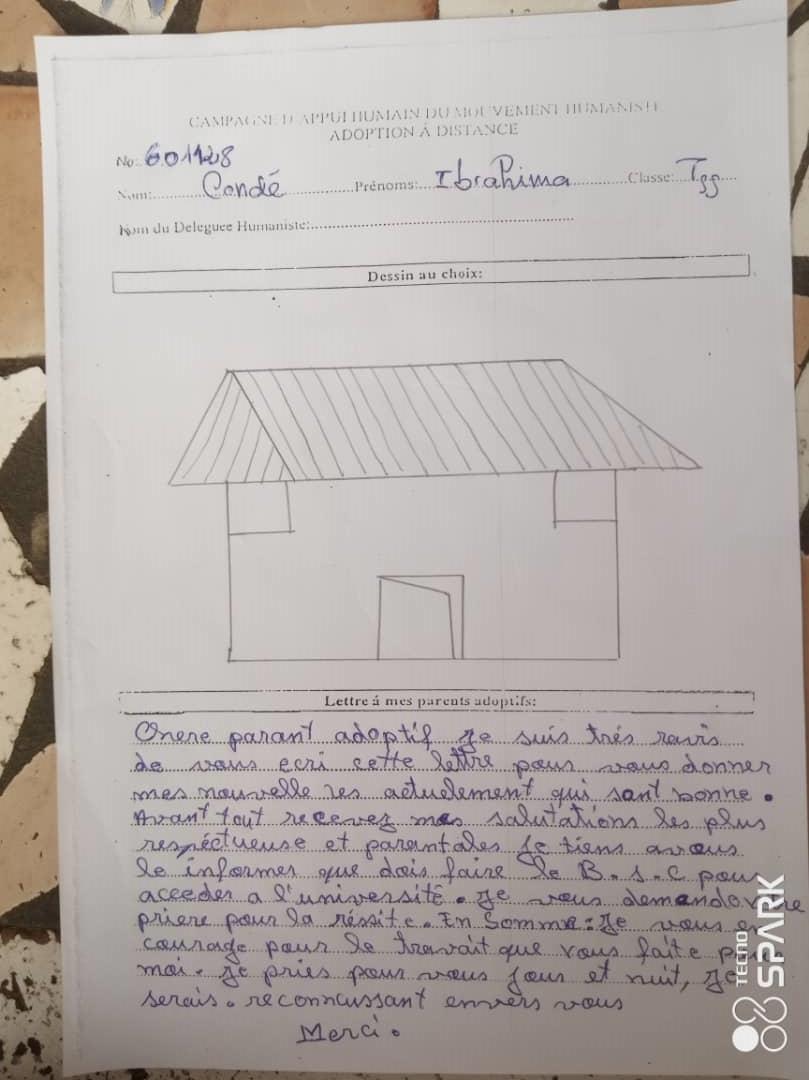 CAMPAGNE D'APPUI HUMAIN DU MOUVEMENT HUMANISTE
ADOPTION Á DISTANCE
No: 601128
Nom: Condé Prénoms: Ibrahima Classe: Tgg
Nom du Deleguee Humaniste:
Dessin au choix:
Lettre á mes parents adoptifs:
Chere parant adoptif je suis trés ravis
de vous ecri cette lettre pour vous donner
mes nouvelle res actuelement qui sont bonne.
Avant tout recevez mes salutations les plus
respéctueuse et parentales je tiens avous
le informes que dois faire le B.S.C pour
acceder a l'université. Je vous demande
priere pour la réssite. En Somme: Je vous en
courage pour le travait que vous faite pour
moi. Je pries pour vous jous et nuit, Je
serais. reconnussant envers vous
Merci.
TECNO
SPARK